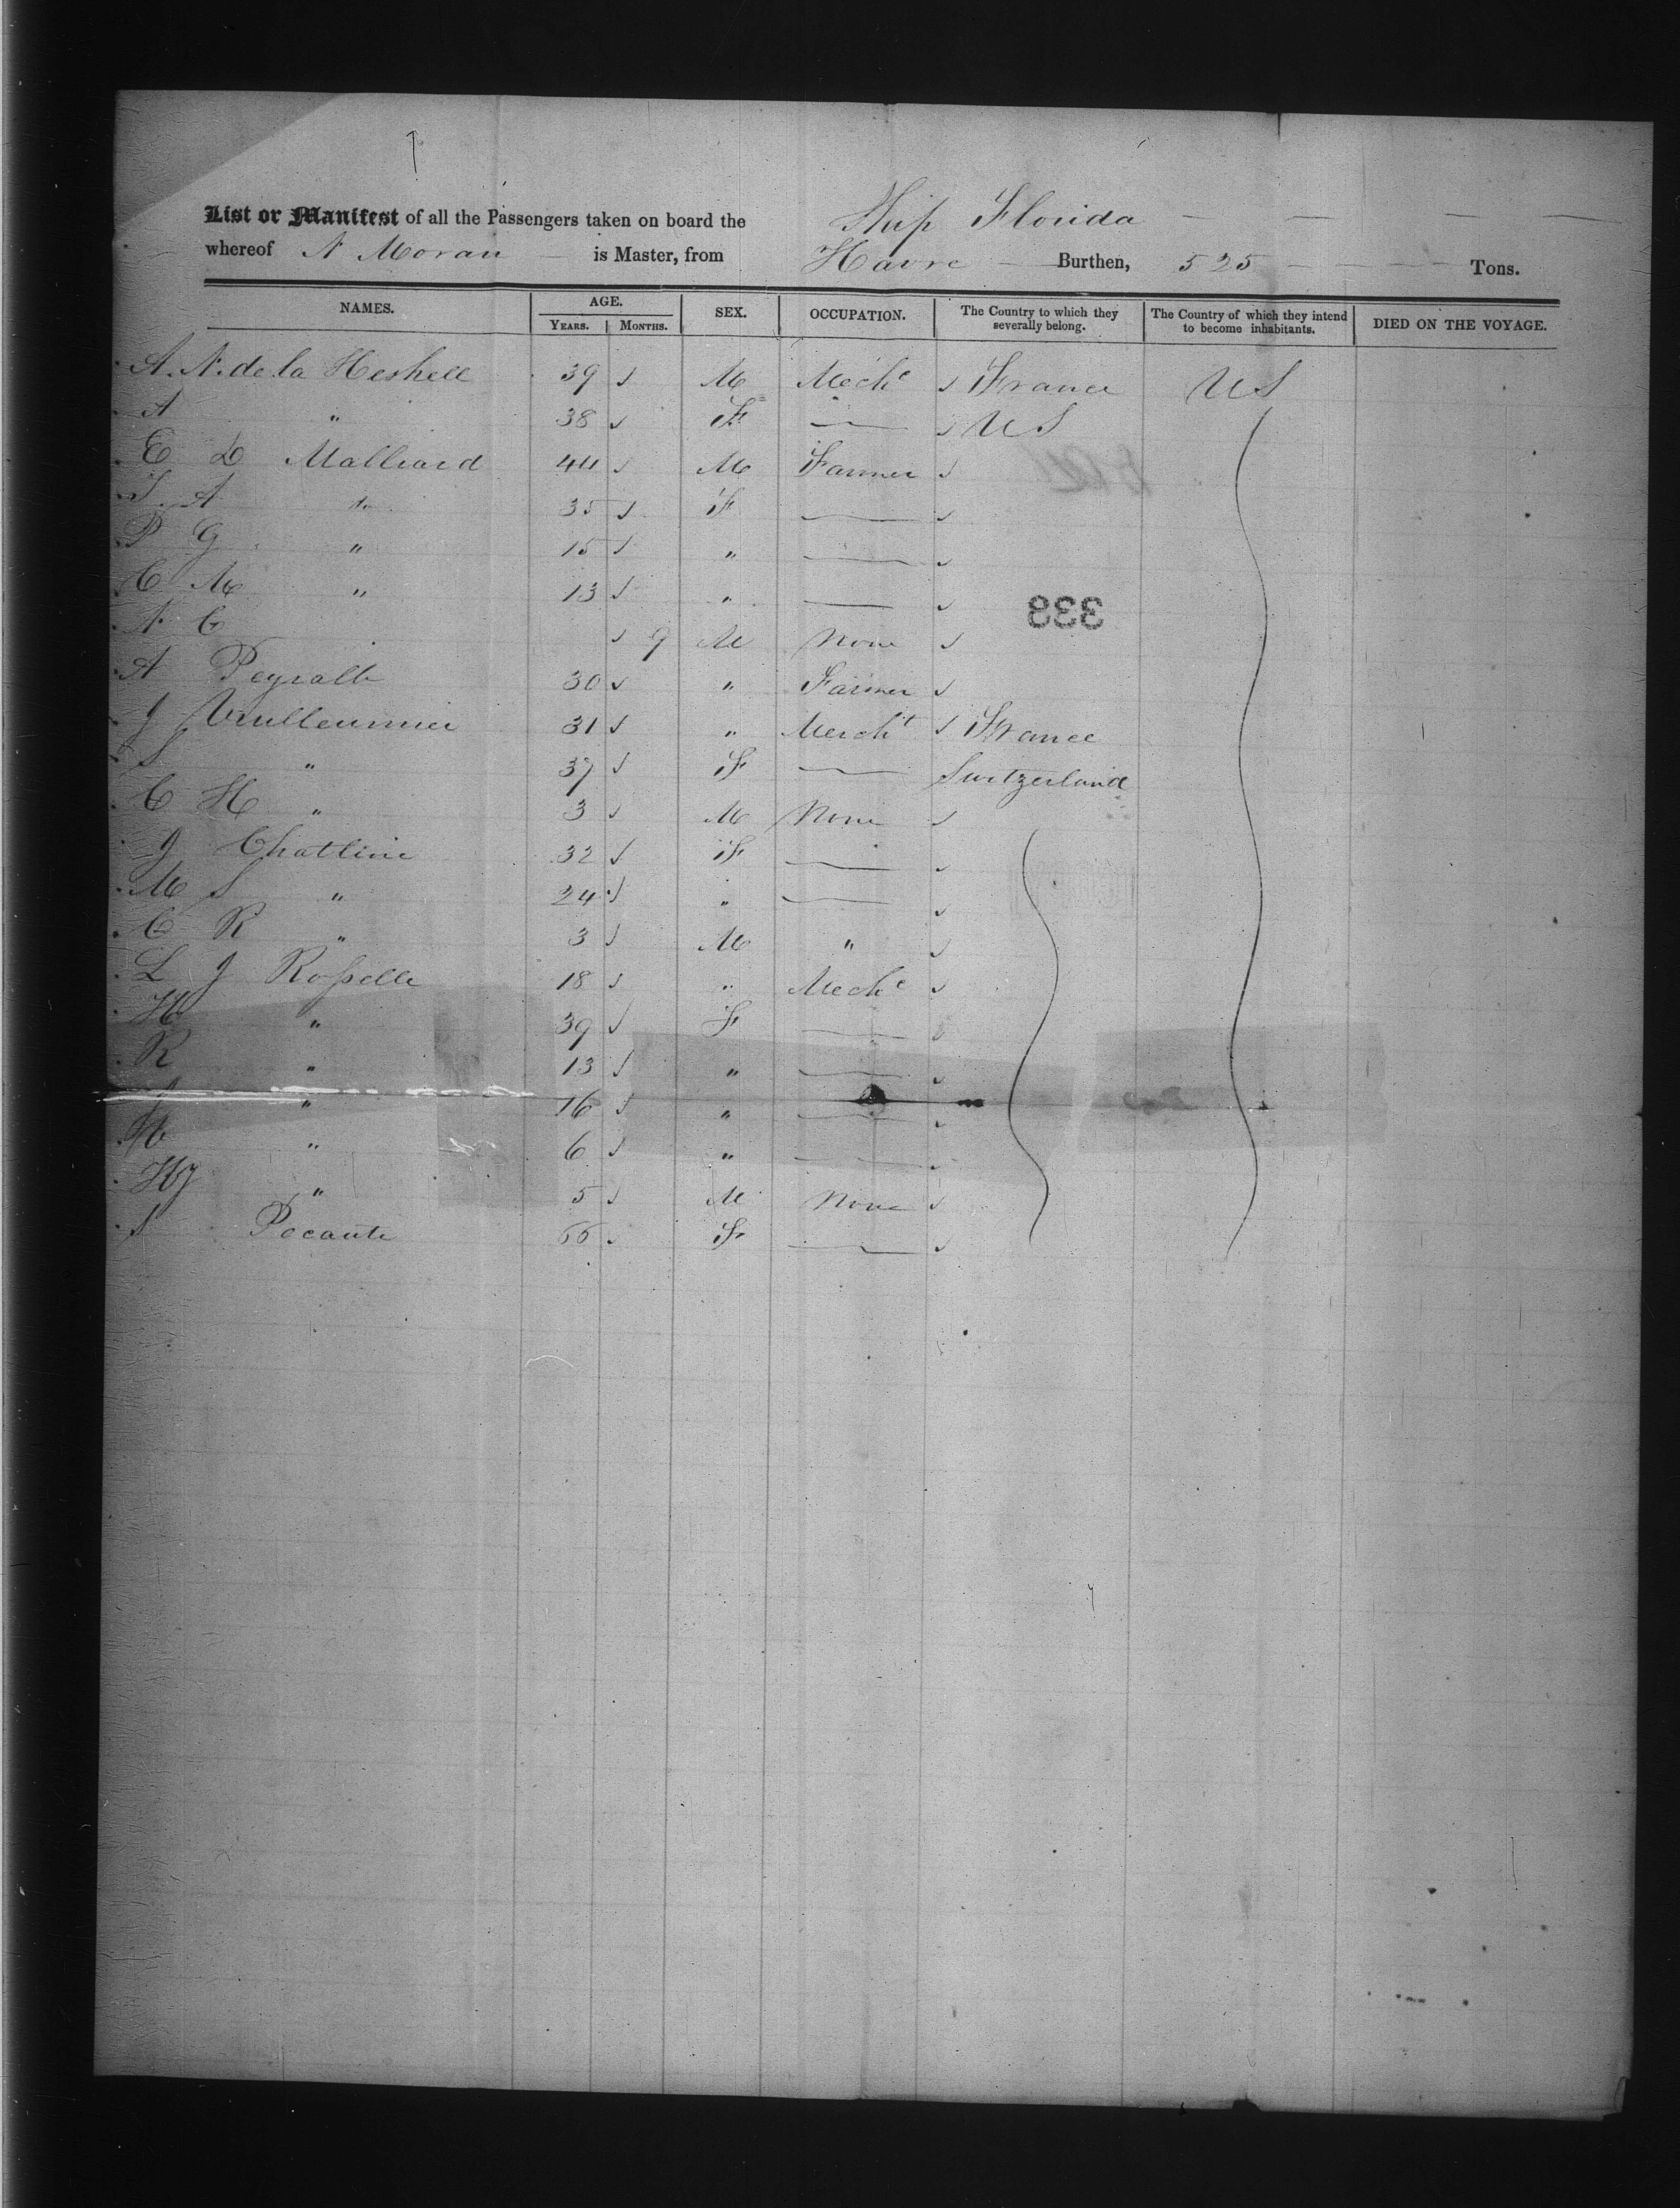 List or Manifest of all the Passengers taken on board the Ship Florida
whereof N Moran is Master, from Havre Burthen, 525 Tons.
NAMES. AGE. SEX. OCCUPATION. The Country to which they severally belong. The Country of which they intend to become inhabitants. DIED ON THE VOYAGE.
YEARS. MONTHS.
A. N. de la Heshell 39 M Mechc France US
A " 38 F — US
E D Malliard 44 M Farmer
S. A " 35 F —
P G " 15 " —
C M " 13 " —
N C 9 M None
A Peyralb 30 " Farmer
J Vuilleumier 31 " Mercht France
S " 37 F — Switzerland
C H " 3 M None
J Chatline 32 F —
M S " 24 " —
C R " 3 M "
L J Rosselle 18 " Mechc
H " 39 F —
R " 13 " —
" 16 " —
" 6 " —
HJ " 5 M None
S Pocaute 66 F —
333